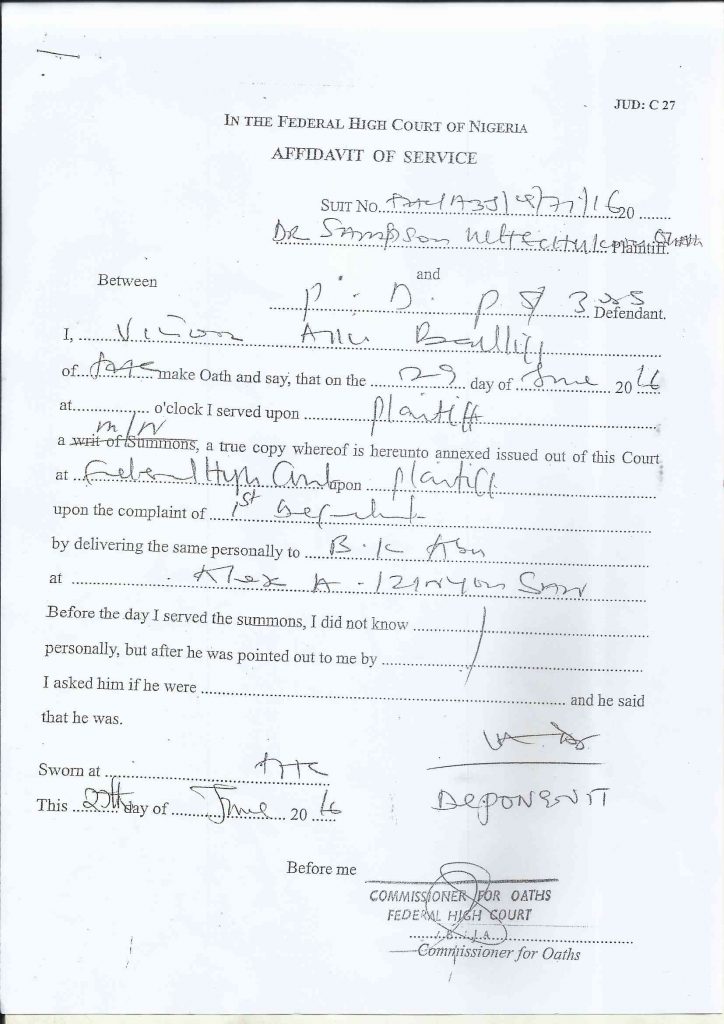 JUD: C 27
IN THE FEDERAL HIGH COURT OF NIGERIA
AFFIDAVIT OF SERVICE
SUIT NO. 16 20
DR SAMPSON Plaintiff.
Between and
P. D. P & 3 Defendant.
I, Bailiff
of make Oath and say, that on the 29 day of June 2016
at o'clock I served upon Plaintiff
m/n
a writ of Summons, a true copy whereof is hereunto annexed issued out of this Court
at Federal High Court upon Plaintiff
upon the complaint of 1st Defendant
by delivering the same personally to B. K Abu
at Alex A. Izinyon SAN
Before the day I served the summons, I did not know
personally, but after he was pointed out to me by
I asked him if he were and he said
that he was.
Sworn at
DEPONENT
This day of June 2016
Before me
COMMISSIONER FOR OATHS
FEDERAL HIGH COURT
Commissioner for Oaths